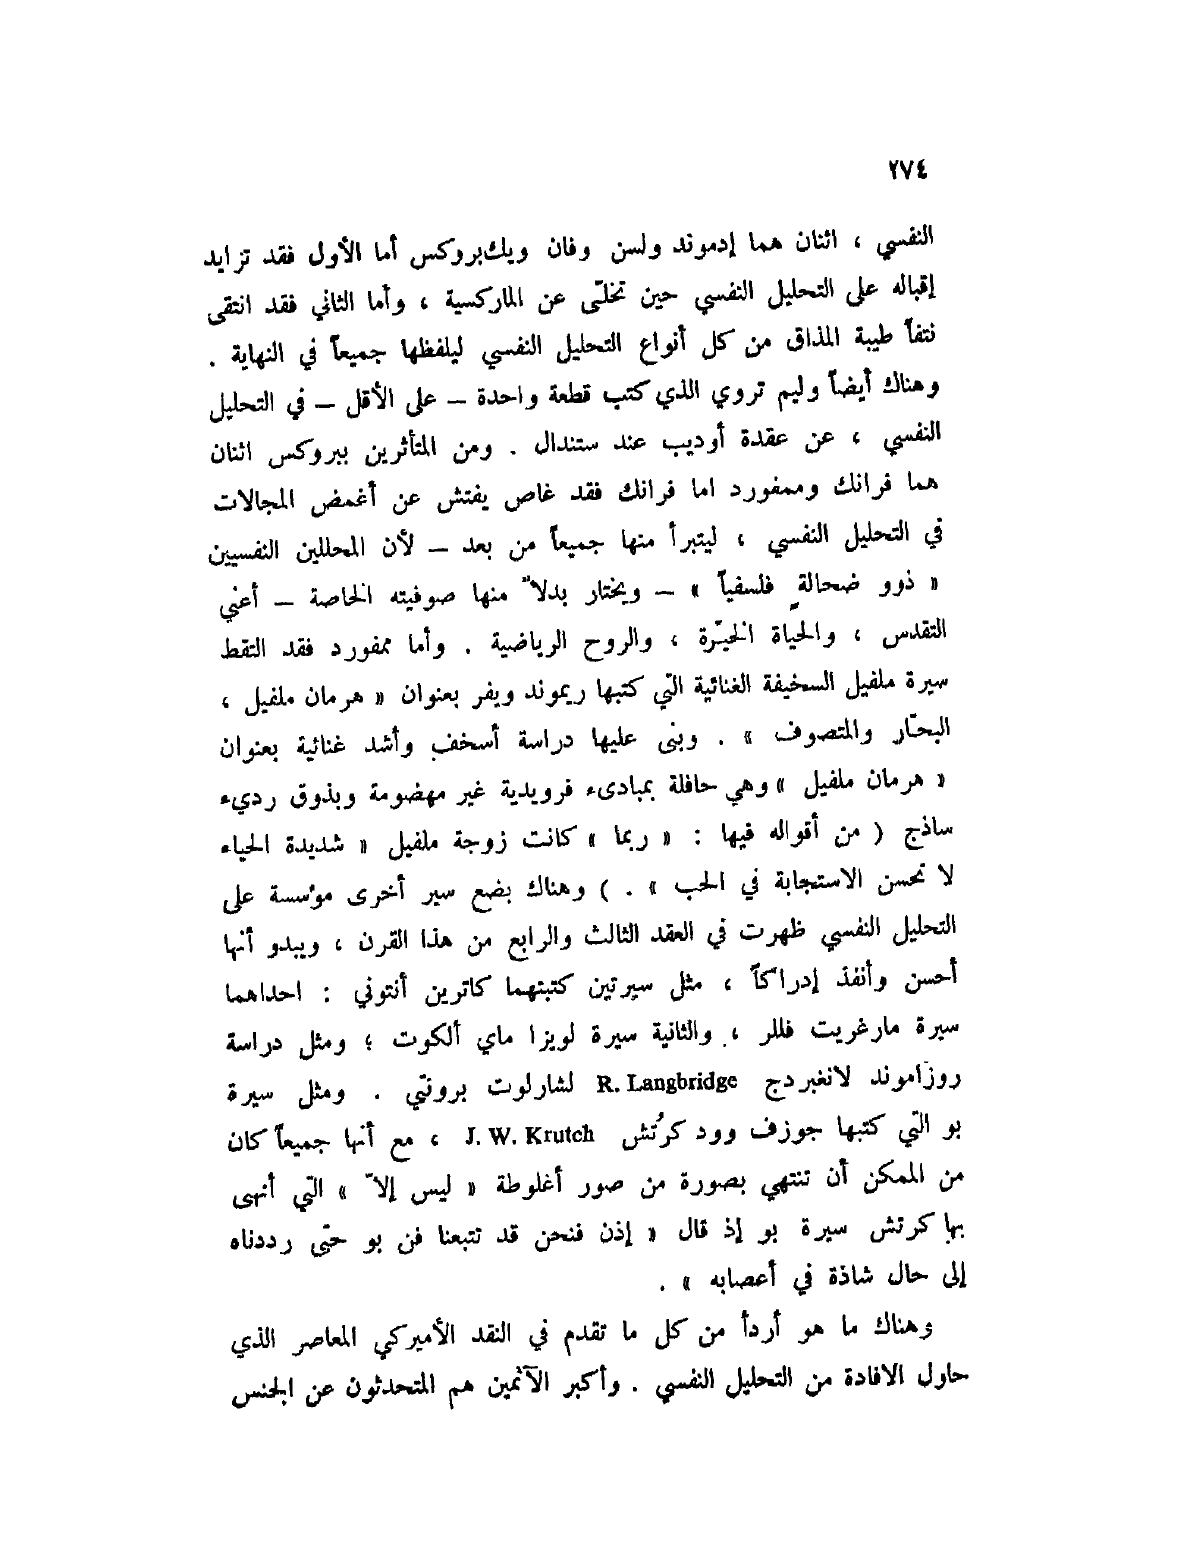 ٢٧٤
النفسي ، اثنان هما إدموند ولسن وفان ويك‌بروكس أما الأول فقد تزايد
إقباله على التحليل النفسي حين تخلّى عن الماركسية ، وأما الثاني فقد انتقى
نتفاً طيبة المذاق من كل أنواع التحليل النفسي ليلفظها جميعاً في النهاية .
وهناك أيضاً وليم تروي الذي كتب قطعة واحدة – على الأقل – في التحليل
النفسي ، عن عقدة أوديب عند ستندال . ومن المتأثرين ببروكس اثنان
هما فرانك وممفورد اما فرانك فقد غاص يفتش عن أغمض المجالات
في التحليل النفسي ، ليتبرأ منها جميعاً من بعد – لأن المحللين النفسيين
« ذوو ضحالةٍ فلسفياً » – ويختار بدلاً منها صوفيته الخاصة – أعني
التقدس ، والحياة الخيّرة ، والروح الرياضية . وأما ممفورد فقد التقط
سيرة ملفيل السخيفة الغنائية التي كتبها ريموند ويفر بعنوان « هرمان ملفيل ،
البحّار والمتصوف » . وبنى عليها دراسة أسخف وأشد غنائية بعنوان
« هرمان ملفيل » وهي حافلة بمبادىء فرويدية غير مهضومة وبذوق رديء
ساذج ( من أقواله فيها : « ربما » كانت زوجة ملفيل « شديدة الحياء
لا تحسن الاستجابة في الحب » . ) وهناك بضع سير أخرى مؤسسة على
التحليل النفسي ظهرت في العقد الثالث والرابع من هذا القرن ، ويبدو أنها
أحسن وأنفذ إدراكاً ، مثل سيرتين كتبتهما كاترين أنتوني : احداهما
سيرة مارغريت فللر ، والثانية سيرة لويزا ماي ألكوت ؛ ومثل دراسة
روزاموند لانغبردج R. Langbridge لشارلوت برونتي . ومثل سيرة
بو التي كتبها جوزف وود كرُتش J. W. Krutch ، مع أنها جميعاً كان
من الممكن أن تنتهي بصورة من صور أغلوطة « ليس إلاّ » التي أنهى
بها كرتش سيرة بو إذ قال « إذن فنحن قد تتبعنا فن بو حتى رددناه
إلى حال شاذة في أعصابه » .
وهناك ما هو أردأ من كل ما تقدم في النقد الأميركي المعاصر الذي
حاول الافادة من التحليل النفسي . وأكبر الآثمين هم المتحدثون عن الجنس